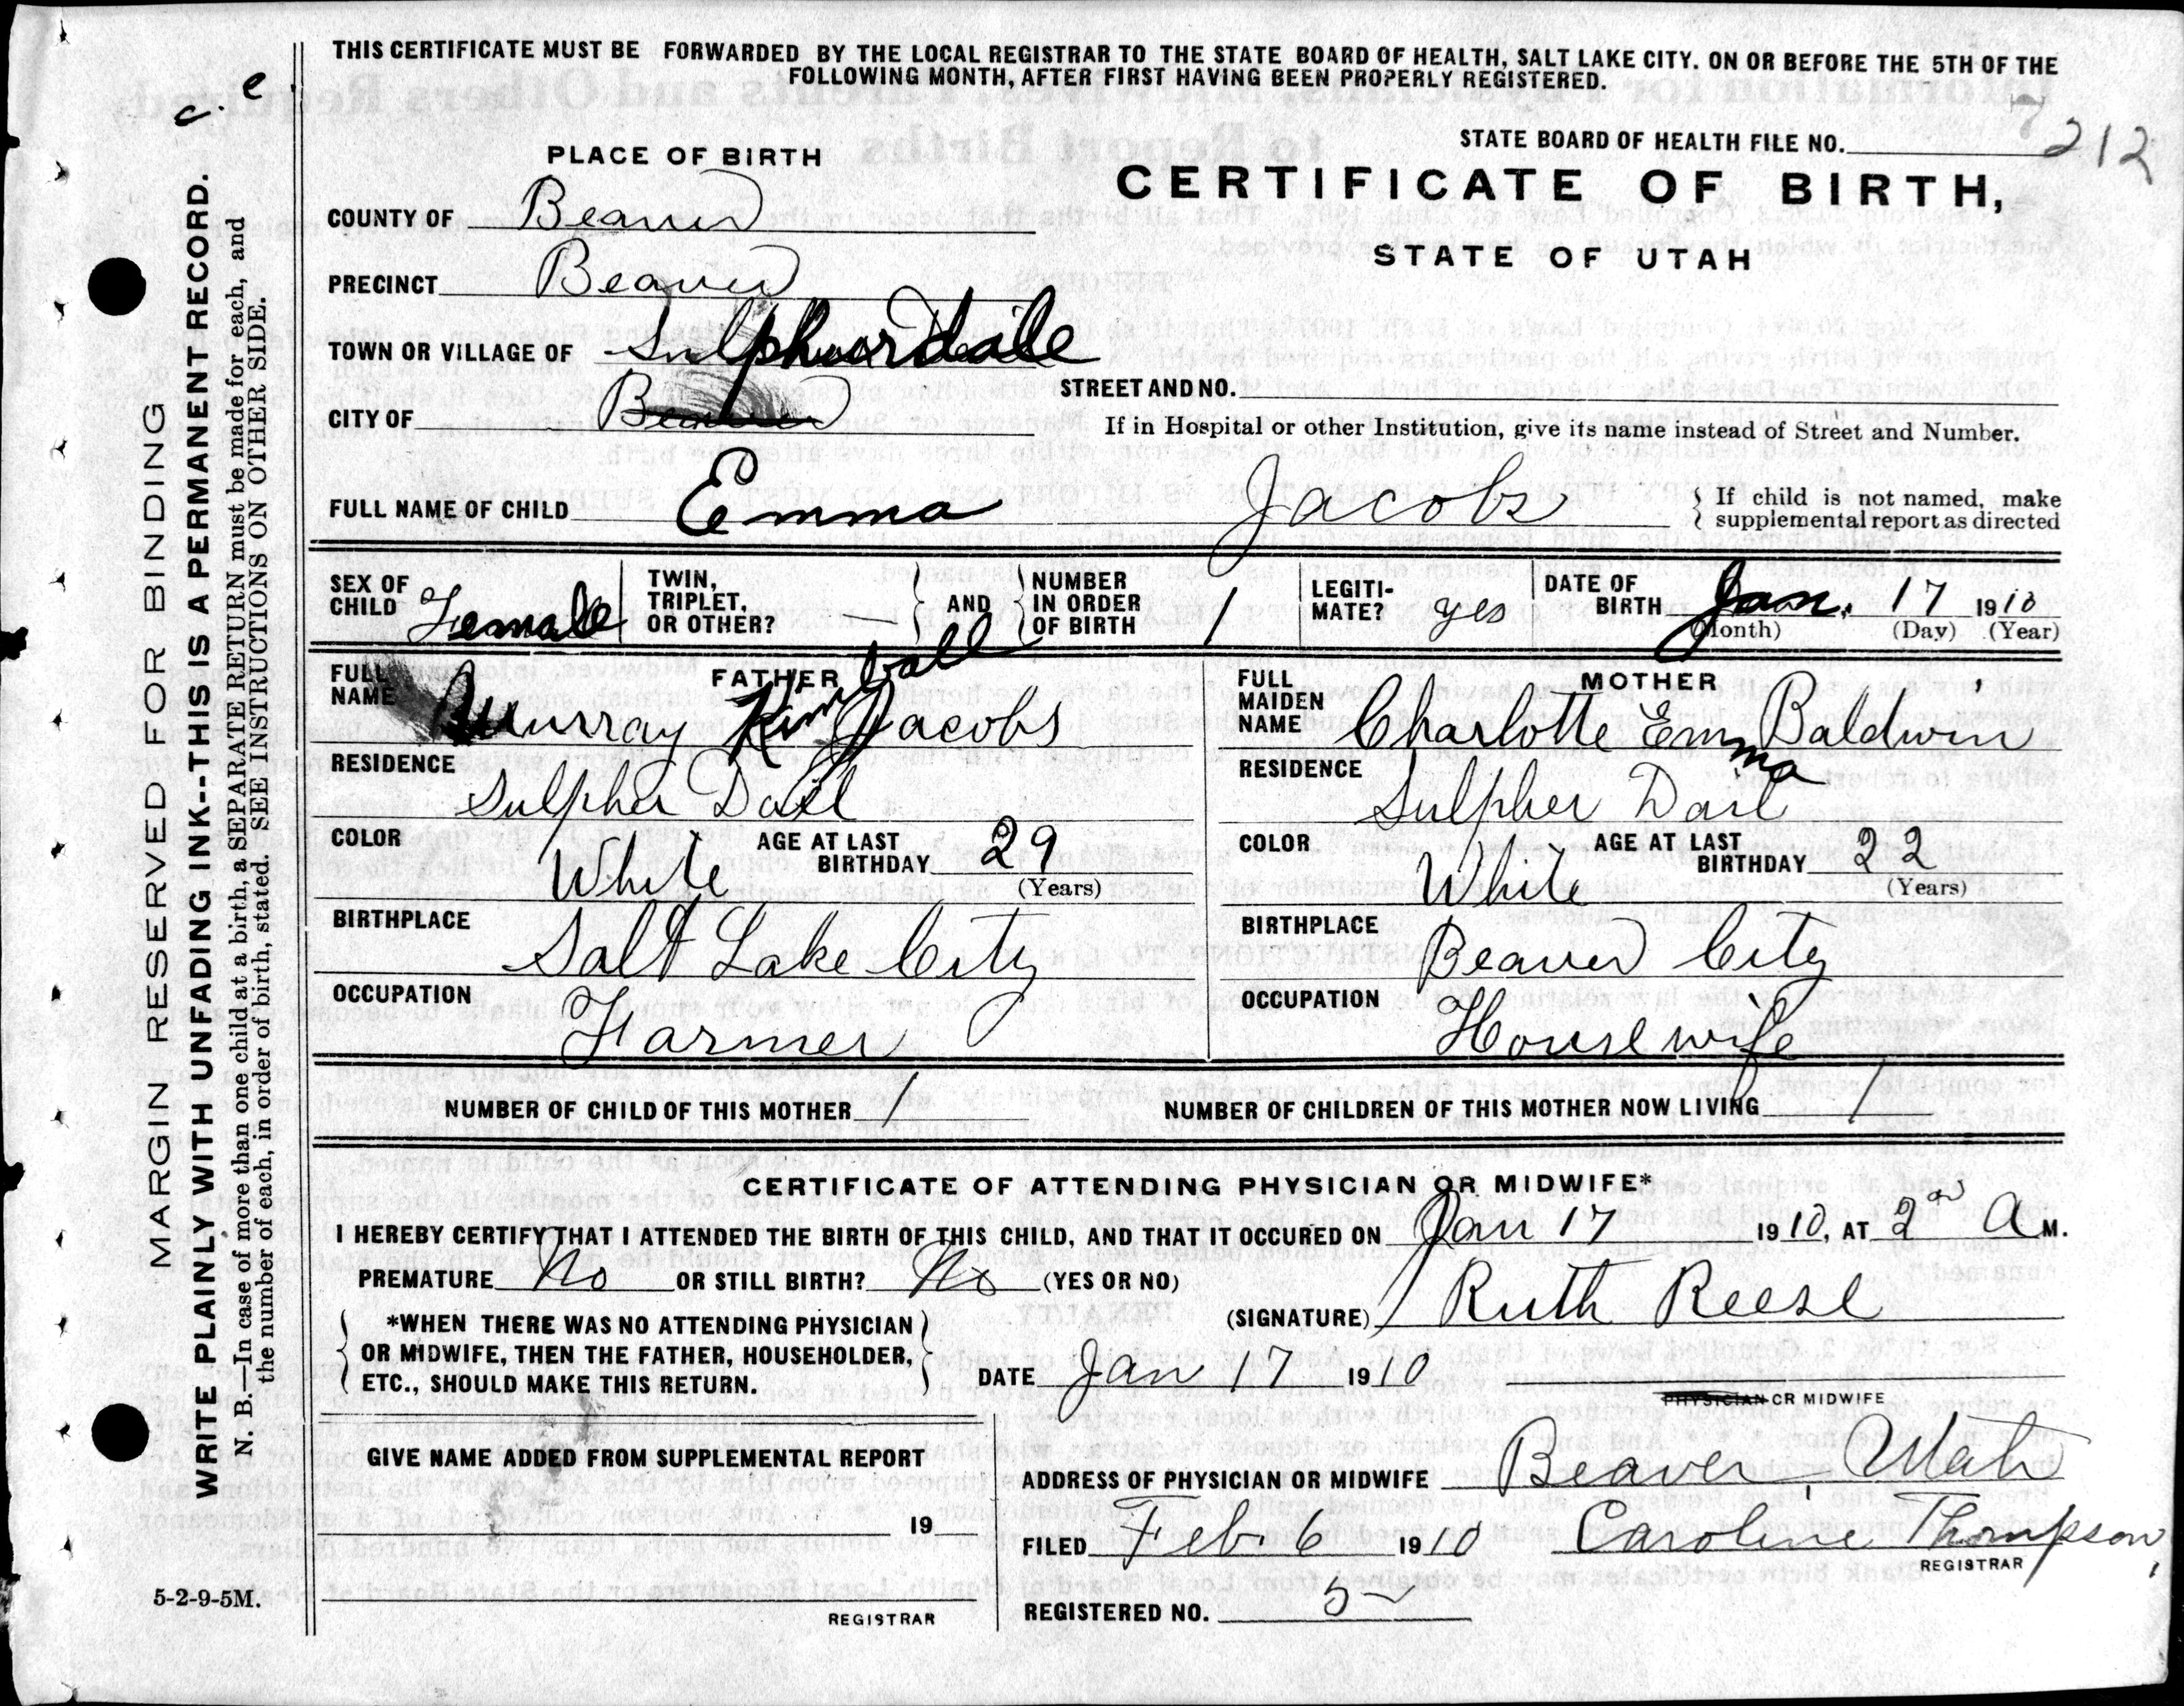 THIS CERTIFICATE MUST BE FORWARDED BY THE LOCAL REGISTRAR TO THE STATE BOARD OF HEALTH, SALT LAKE CITY. ON OR BEFORE THE 5TH OF THE
FOLLOWING MONTH, AFTER FIRST HAVING BEEN PROPERLY REGISTERED.
c. e
212
STATE BOARD OF HEALTH FILE NO.
PLACE OF BIRTH
CERTIFICATE OF BIRTH,
STATE OF UTAH
COUNTY OF Beaver
PRECINCT Beaver
TOWN OR VILLAGE OF Sulphurdale
STREET AND NO.
CITY OF Beaver
If in Hospital or other Institution, give its name instead of Street and Number.
FULL NAME OF CHILD Emma Jacobs
If child is not named, make
supplemental report as directed
SEX OF CHILD Female
TWIN, TRIPLET, OR OTHER? —
AND
NUMBER IN ORDER OF BIRTH 1
LEGITI-MATE? yes
DATE OF BIRTH Jan. 17 1910
(Month) (Day) (Year)
FATHER
FULL NAME Murray Kimball Jacobs
RESIDENCE Sulpher Dail
COLOR White AGE AT LAST BIRTHDAY 29
(Years)
BIRTHPLACE Salt Lake City
OCCUPATION Farmer
MOTHER
FULL MAIDEN NAME Charlotte Emma Baldwin
RESIDENCE Sulpher Dail
COLOR White AGE AT LAST BIRTHDAY 22
(Years)
BIRTHPLACE Beaver City
OCCUPATION Housewife
NUMBER OF CHILD OF THIS MOTHER 1 NUMBER OF CHILDREN OF THIS MOTHER NOW LIVING 1
CERTIFICATE OF ATTENDING PHYSICIAN OR MIDWIFE*
I HEREBY CERTIFY THAT I ATTENDED THE BIRTH OF THIS CHILD, AND THAT IT OCCURED ON Jan 17 1910, AT 2 A M.
PREMATURE No OR STILL BIRTH? No (YES OR NO)
(SIGNATURE) Ruth Reese
*WHEN THERE WAS NO ATTENDING PHYSICIAN
OR MIDWIFE, THEN THE FATHER, HOUSEHOLDER,
ETC., SHOULD MAKE THIS RETURN.
DATE Jan 17 1910
PHYSICIAN OR MIDWIFE
GIVE NAME ADDED FROM SUPPLEMENTAL REPORT
19
REGISTRAR
ADDRESS OF PHYSICIAN OR MIDWIFE Beaver, Utah
FILED Feb. 6 1910 Caroline Thompson,
REGISTRAR
REGISTERED NO. 5
5-2-9-5M.
MARGIN RESERVED FOR BINDING
WRITE PLAINLY WITH UNFADING INK--THIS IS A PERMANENT RECORD.
N. B.—In case of more than one child at a birth, a SEPARATE RETURN must be made for each, and
the number of each, in order of birth, stated. SEE INSTRUCTIONS ON OTHER SIDE.